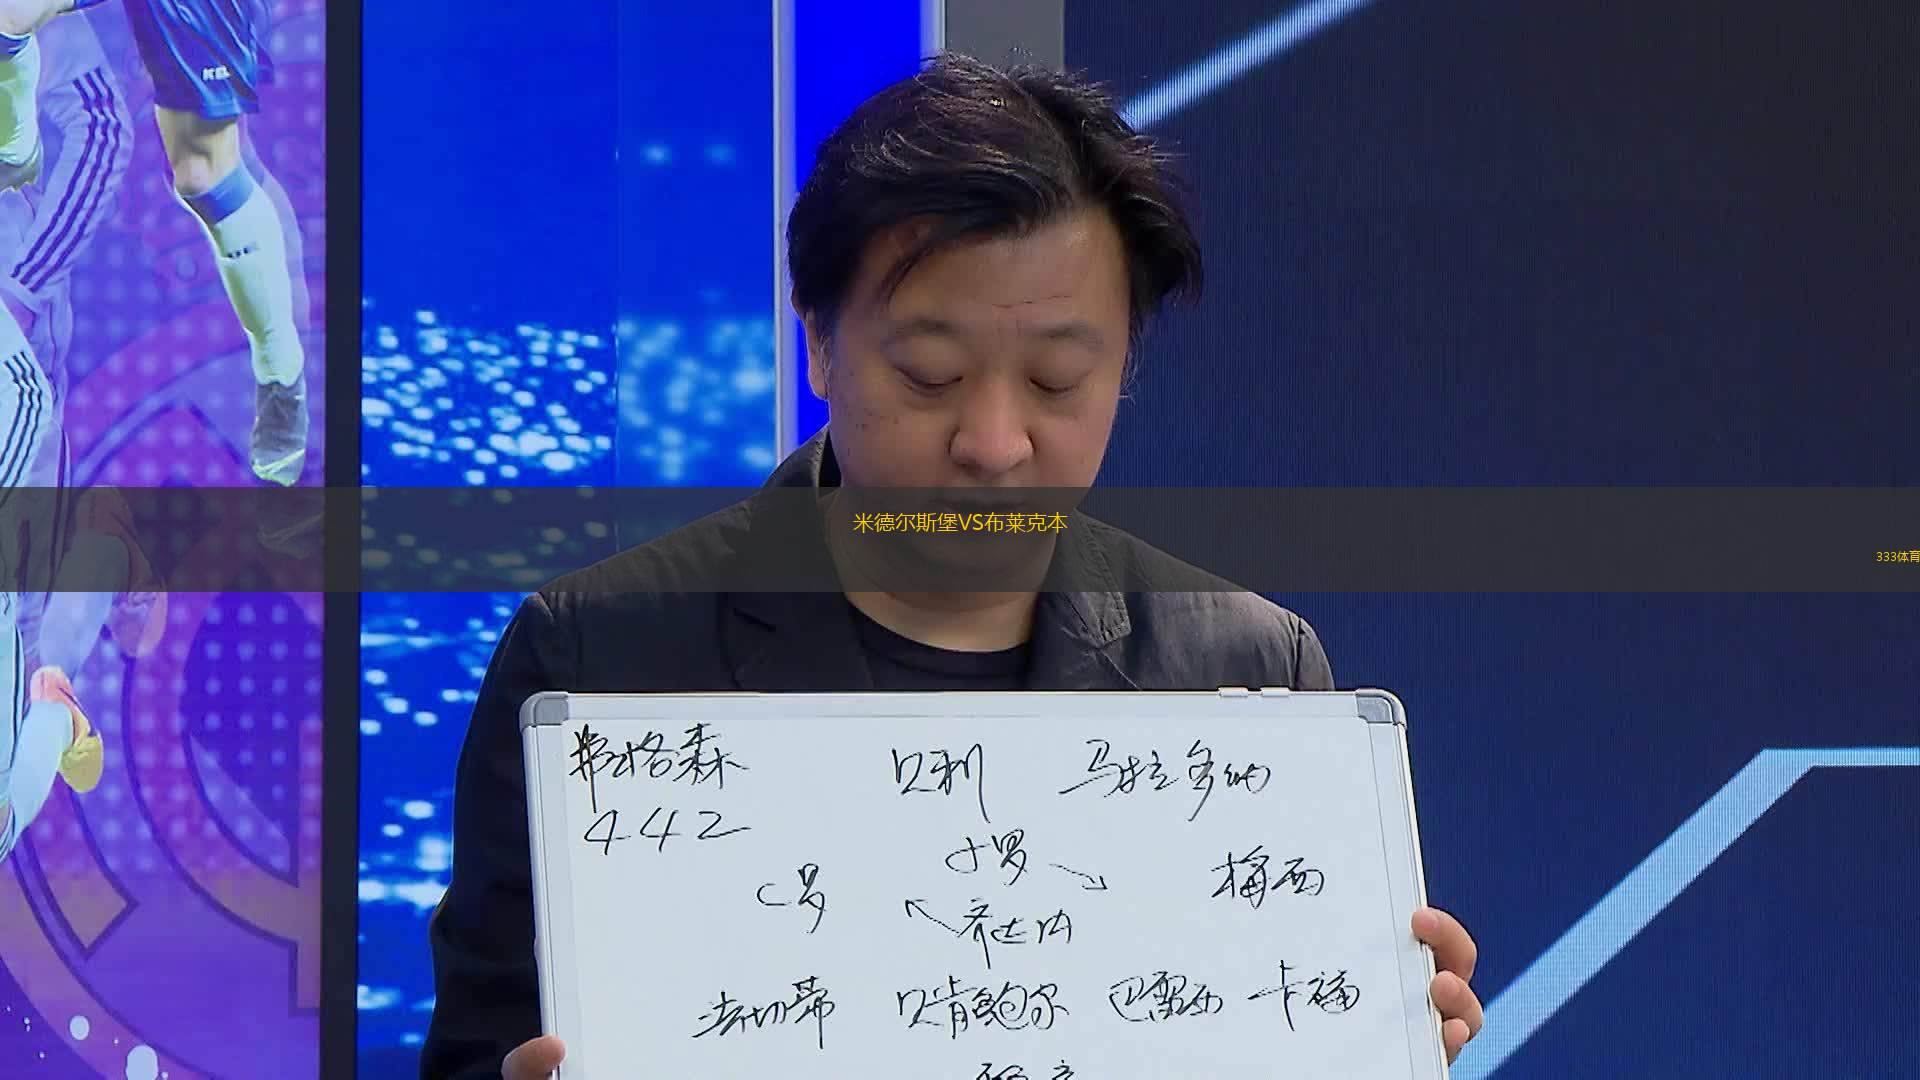 米德尔斯堡VS布莱克本
333体育
弗格森 贝利 马拉多纳
442
小罗
C罗 梅西
齐达内
法切蒂 贝肯鲍尔 巴雷西 卡福